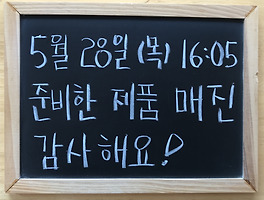 5월 28일 (목) 16:05
준비한 제품 매진
감사해요!